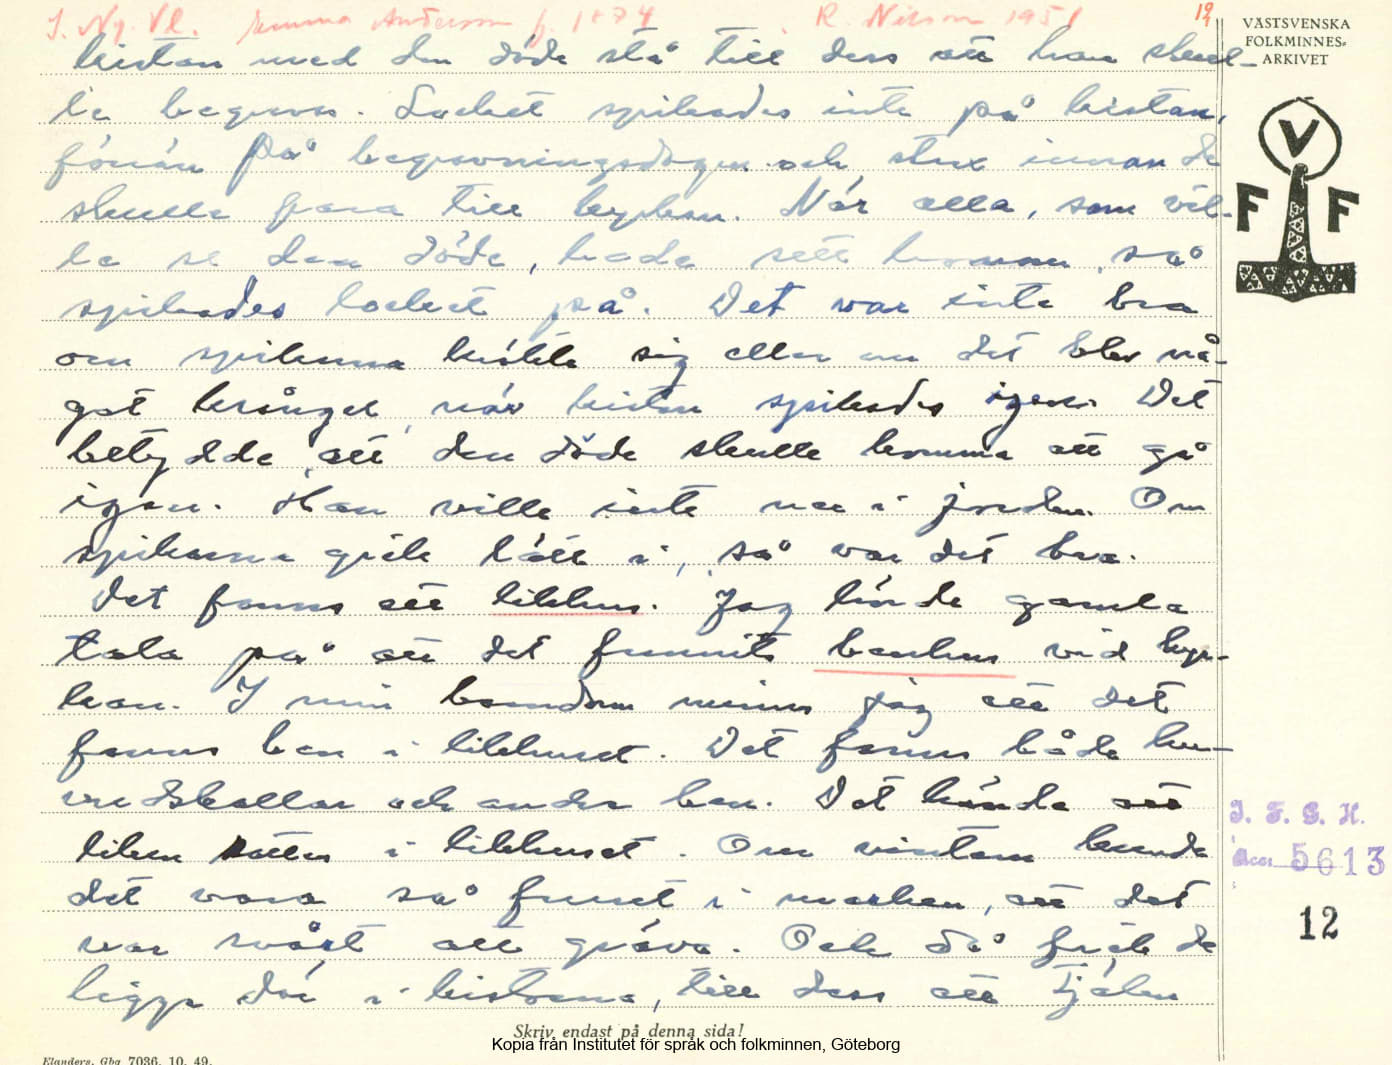 S. Ny. Vl. Emma Andersson f. 1874 R. Nilson 1951 12
VÄSTSVENSKA
FOLKMINNES-
ARKIVET
V
F F
kistan med den döde stå till dess att han skul-
le begravas. Locket spikades inte på kistan,
förrän på begravningsdagen och strax innan de
skulle fara till kyrkan. När alla, som vil-
le se den döde, hade sett honom, så
spikades locket på. Det var inte bra
om spikarna krökte sig eller om det blev nå-
got krångel, när kistan spikades igen. Det
betydde, att den döde skulle komma att gå
igen. Han ville inte ner i jorden. Om
spikarna gick lätt i, så var det bra.
Det fanns ett likhus. Jag hörde gamla
tala på att det funnits benhus vid kyr-
kan. I min barndom minns jag att det
fanns ben i likhuset. Det fanns både hu-
vudskallar och andra ben. Det hände att
liken sattes i likhuset. Om vintern kunde
det vara så fruset i marken, att det
var svårt att gräva. Och då fick de
ligga där i kistorna, till dess att tjälen
I. F. G. H.
Acc. 5613
12
Skriv endast på denna sida!
Kopia från Institutet för språk och folkminnen, Göteborg
Elanders, Gbg 7036. 10. 49.